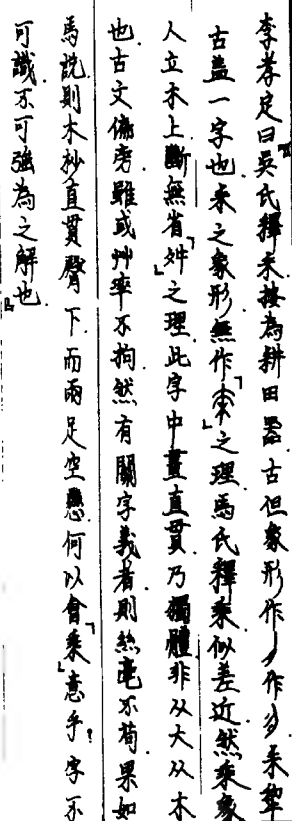 李孝定曰「吳氏釋耒按為耕田器古但象形作𠂈作𠂈耒犂
古蓋一字也耒之象形無作「𣎳」之理馬氏釋乘似差近然乘象
人立木上斷無省「舛」之理此字中畫直貫乃獨體非从大从木
也古文偏旁雖或艸率不拘然有關字義者則絲毫不苟果如
馬說則木杪直貫臀下而兩足空懸何以會「乘」意乎?字不
可識不可強為之解也」